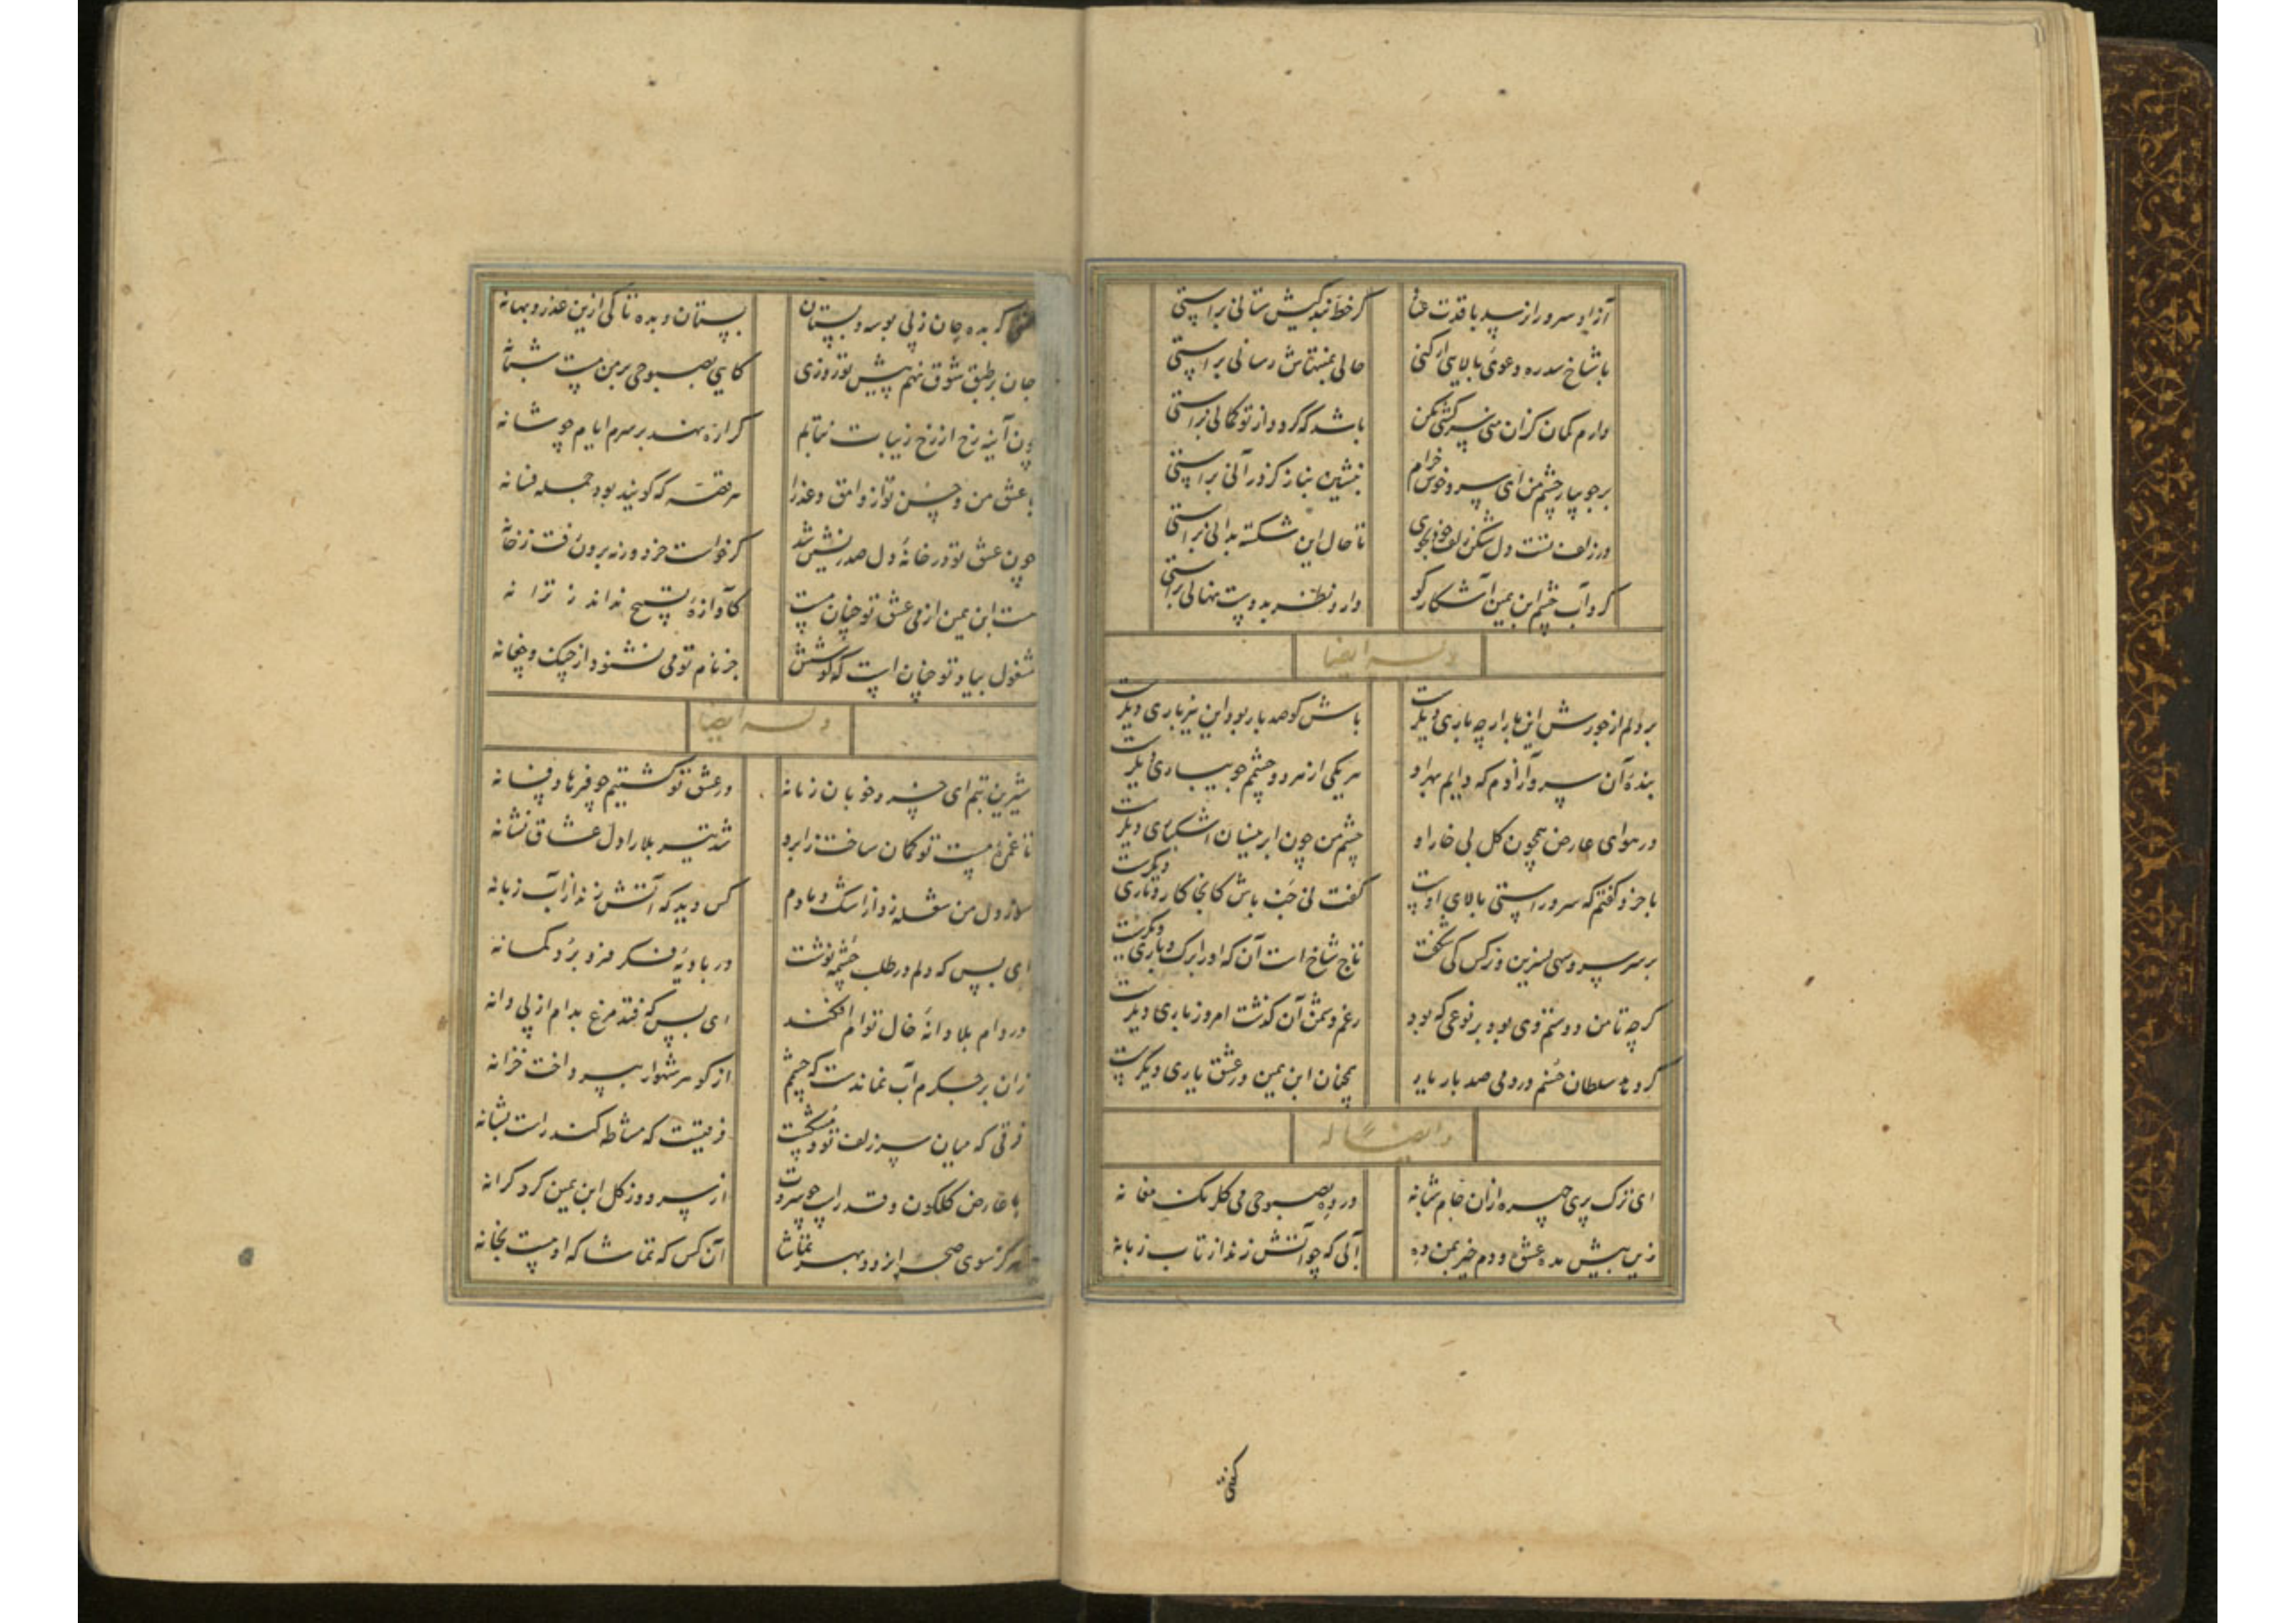 آزاد سرو را نرسد با قدت عنا گر خط بندگیش ستانی براستی
با شاخ سدره دعوی بالایی ار کنی حالی بمنتهاش رسانی براستی
دارم کمان کزان منی سرکشی مکن باشد که گردد از تو کمانی براستی
بر جویبار چشم من ای سرو خوش خرام بنشین بناز کز در آنی براستی
در زلف تست دل شکن زلف خود بجوی تا حال این شکسته بدانی براستی
کرد آب چشم ابن یمین آشکار کو دارد نظر بدوست نهانی براستی
وله ایضا
بر دلم از جورش این بار ار چه باری دیگرست باش گو صد بار بود این نیز باری دیگرست
بنده آن سرو آزادم که دایم بهر او هر یکی از هر دو چشمم جویباری دیگرست
در هوای عارض همچون گل بی خار او چشم من چون ابر نیسان اشکباری دیگرست
با خرد گفتم که سرو راستی بالای اوست گفت نی خمش باش کانجا کار و باری دیگرست
بر سر سرو سهی نسرین و نرگس کی شکفت تاج شاخ است آن که او را برگ و باری دیگرست
گر چه با من دوستم دی بود بر نوعی که بود رغم دشمن آن گذشت امروز باری دیگرست
گر دهد سلطان حسنم در دمی صد بار بار همچنان ابن یمین در عشق یاری دیگرست
و ایضاً له
ای ترک پری چهره ازان جام شبانه در ده بصبوحی می گلرنگ مغانه
زین بیش مده عشوه و دم خیز بمن ده آبی که چو آتش زند از تاب زبانه
گفتی
گفتی که بده جان ز پی بوسه و بستان بستان و بده تا کی ازین عذر و بهانه
جان بر طبق شوق نهم پیش تو روزی کایی بصبوحی بر من مست شبانه
چون آینه رخ از رخ زیبات نتابم گر اره نهند بر سرم ایام چو شانه
با عشق من و حسن تو از وامق و عذرا هر قصه که گویند بود جمله فسانه
چون عشق تو در خانه دل صدرنشین شد گر خواست خرد ور نه برون رفت ز خانه
مست ابن یمین از می عشق تو چنان مست کآوازه تسبیح نداند ز ترانه
مشغول بیاد تو چنان است که گوشش جز نام تو می نشنود از چنگ و چغانه
وله ایضا
شیرین تنم ای خسرو خوبان زمانه در عشق تو گشتیم چو فرهاد فسانه
تا غمزه مست تو کمان ساخت ز ابرو شد تیر بلا را دل عشاق نشانه
سوز دل من شعله زد از اشک دمادم کس دید که آتش زند از آب زبانه
ای بس که دلم در طلب چشمه نوشت در بادیه فکر فرو برد گمانه
در دام بلا دانه خال توام افکند ای بس که فتد مرغ بدام از پی دانه
زان بر جگرم آب نماندست که چشمم از گوهر شهوار بپرداخت خزانه
فرقی که میان سر زلف تو و مشکست فرقیست که مشاطه کند راست بشانه
با عارض گلگون و قد راست چو سروت از سرو و ز گل ابن یمین کرد کرانه
هرگز سوی صحرا نرود بهر تماشا آن کس که تماشا که اوست بخانه